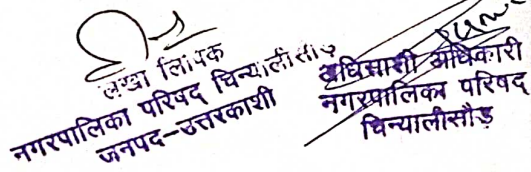 लेखा लिपिक
नगरपालिका परिषद चिन्यालीसौड़
जनपद-उत्तरकाशी
अधिसाशी अधिकारी
नगरपालिका परिषद
चिन्यालीसौड़